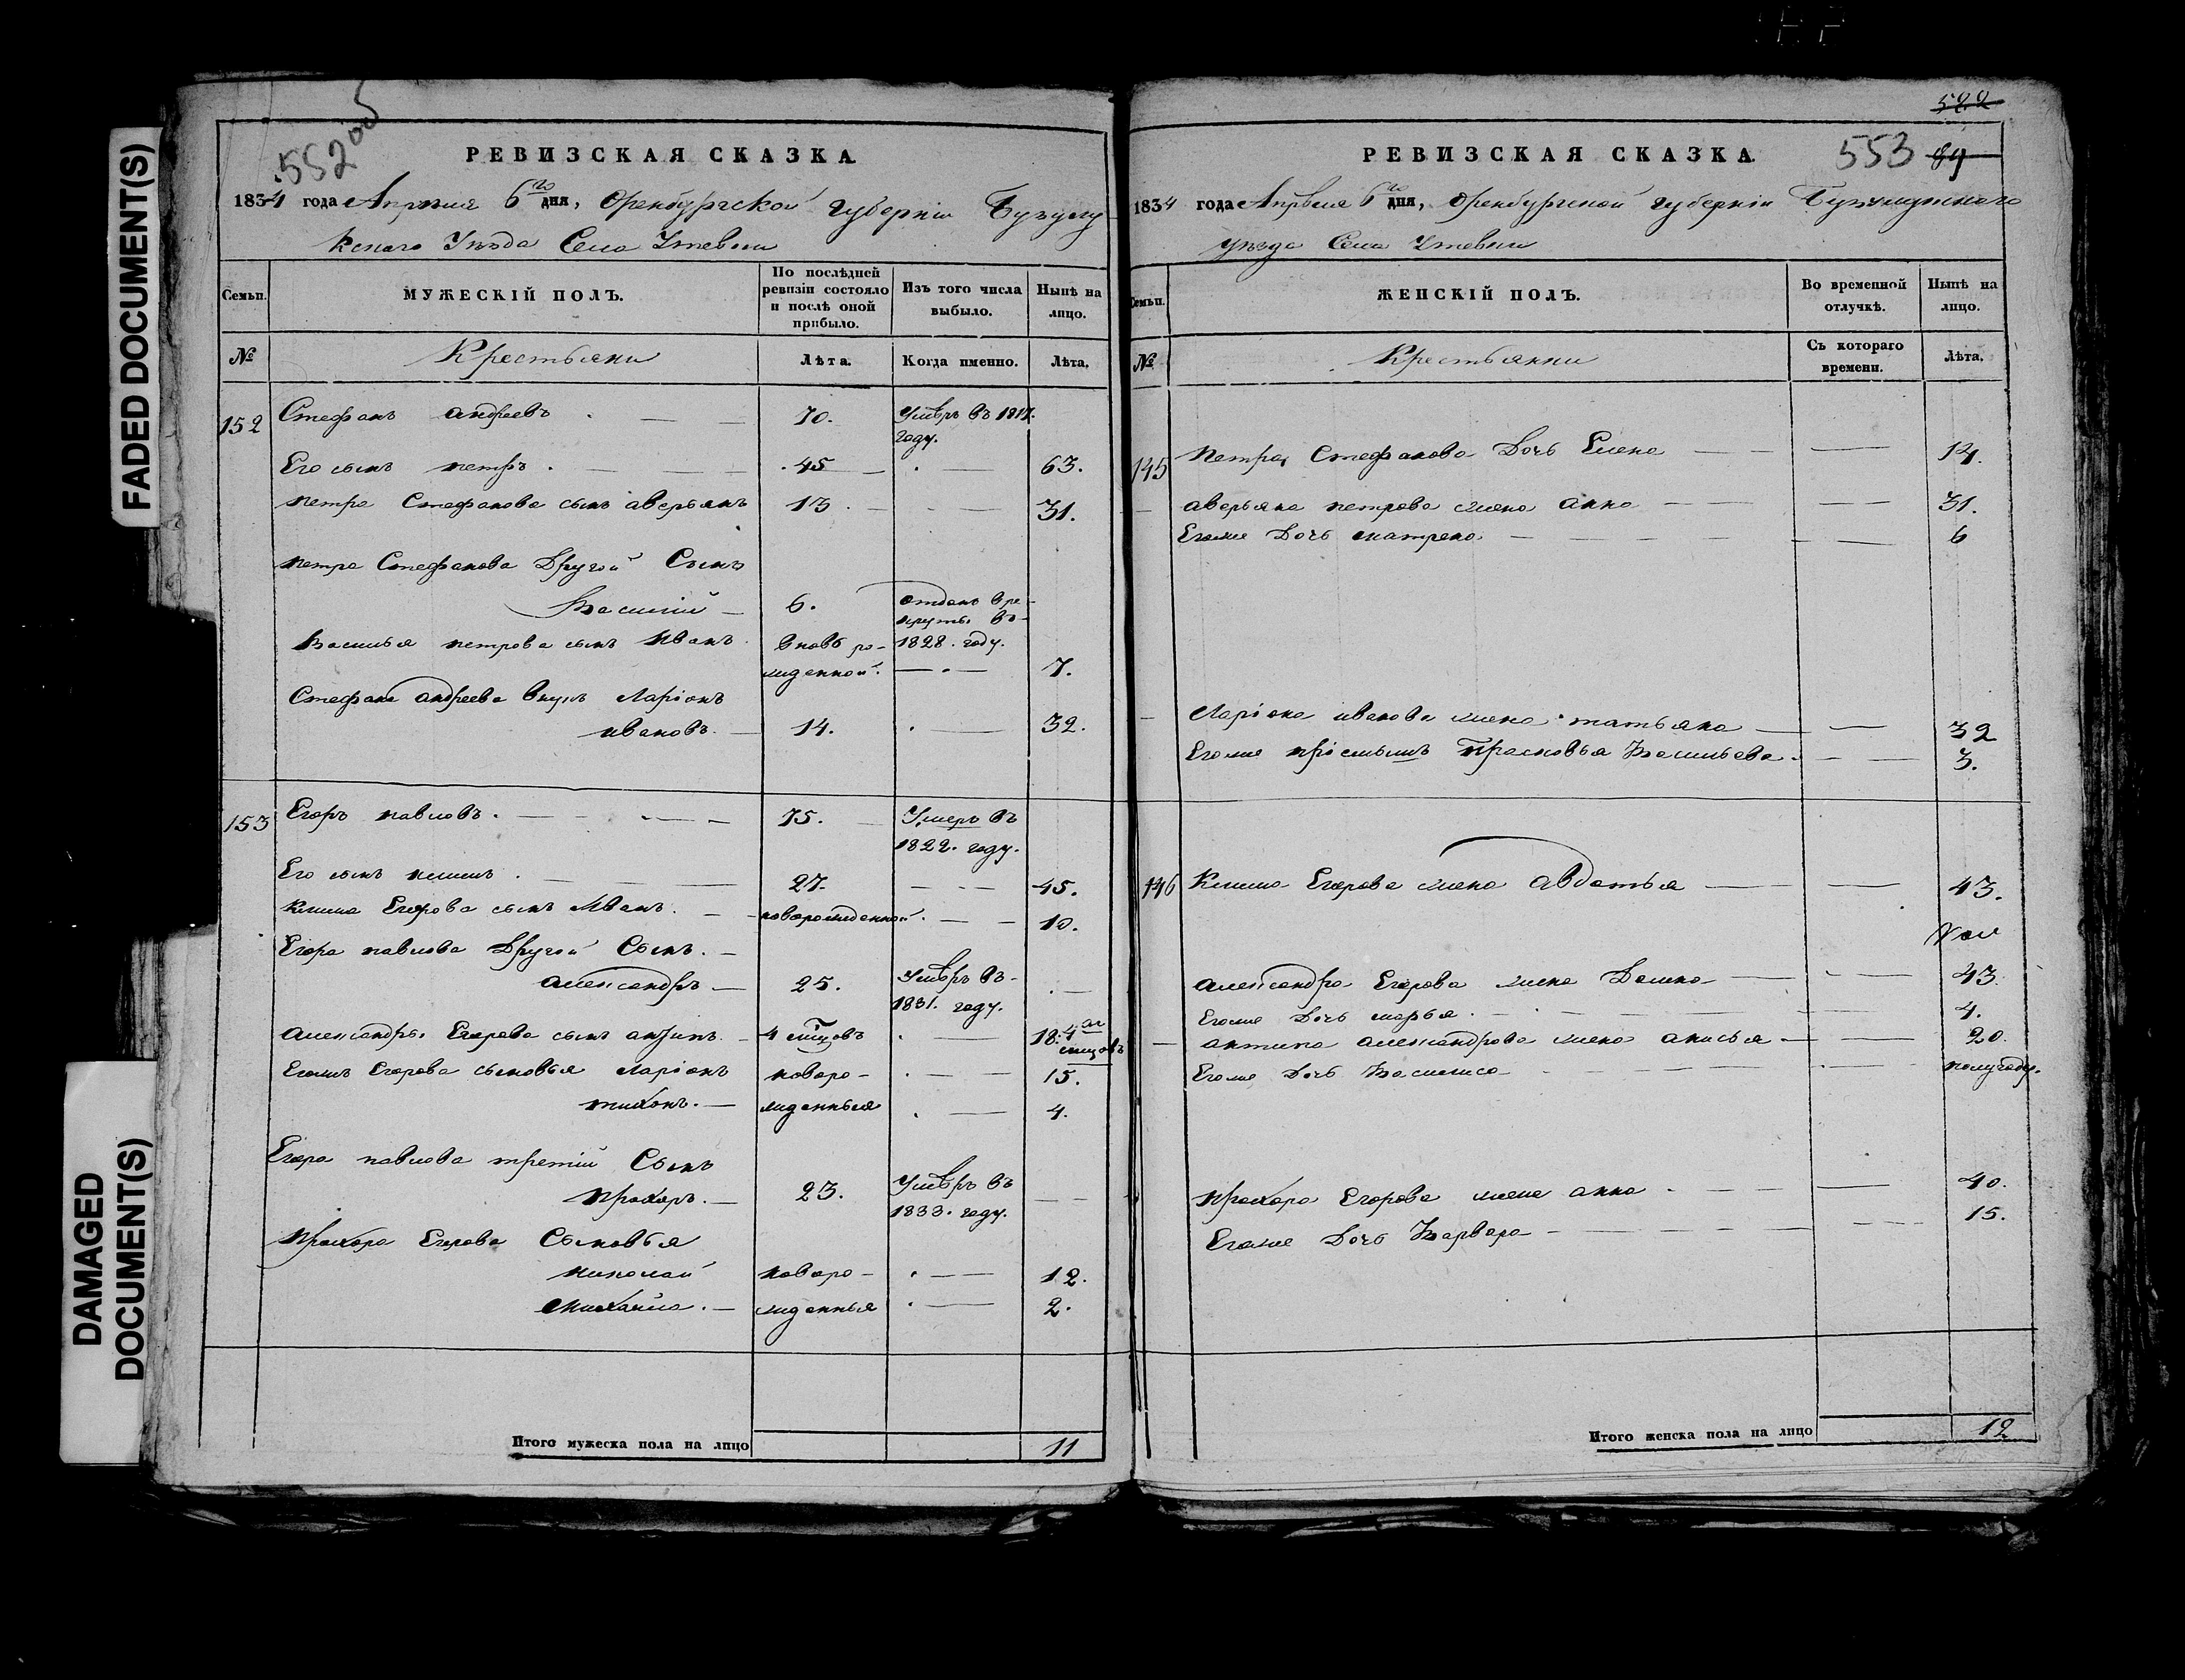 FADED DOCUMENT(S)
DAMAGED
DOCUMENT(S)
552 об
РЕВИЗСКАЯ СКАЗКА
1834 года Апреля 6го дня, Оренбургской губерніи Бузулу
кскаго Уѣзда Села Утевки
Семьи.
МУЖЕСКІЙ ПОЛЪ.
По послѣдней
ревизіи состояло
и послѣ оной
прибыло.
Изъ того числа
выбыло.
Нынѣ на
лицо.
№
Крестьяни
Лѣта.
Когда именно.
Лѣта.
152 Стефанъ андреевъ . — — 70. Умѣръ въ 1817.
году.
Его сынъ петръ . — — 45 — . — 63.
петра Стефанова сынъ аверьянъ 13 . — - — 31.
петра Стефанова Другой Сынъ
Василий — 6. отданъ вре-
круты въ-
Василья петрова сынъ Иванъ. вновь ро- 1828. году.
жденной. — . — 7.
Стефана андреева внукъ Ларіонъ
ивановъ. — 14. . — 32.
153 Егоръ павловъ . — - . — — 75. — Умеръ въ
1822. году.
Его сынъ климъ . — — 27. — - — 45.
Клима Егорова сынъ Иванъ. — новорожденной. — — 10.
Егора павлова Другой Сынъ. —
александръ — 25. Умѣръ въ-
1831. году. . —
александры Егорова сынъ антипъ. — 4 мцовъ . — 18. 4
мцовъ
Егожъ Егорова сыновья Ларіонъ новоро- . — — 15.
тихонъ. — жденныя . — 4.
Егора павлова третій Сынъ
прохоръ. — 23. Умѣръ въ
1833. году. — —
прохора Егорова Сыновья
николай новоро- . — — 12.
михайла . — жденныя . — 2.
Итого мужеска пола на лицо 11
522
553 89
РЕВИЗСКАЯ СКАЗКА
1834 года Апрѣля 6го дня, Оренбургской губерніи Бузулукскаго
уѣзда Села Утевки
Семьи.
ЖЕНСКІЙ ПОЛЪ.
Во временной
отлучкѣ.
Нынѣ на
лицо.
№
Крестьянки
Съ котораго
времени.
Лѣта.
145 петра Стефанова Дочь Елена — — 14.
— аверьяна петрова жена анна — — 31.
Егоже Дочь матрена — — — 6
— Ларіона иванова жена татьяна — — 32
Егоже пріемышъ Прасковья Васильева. — — 3.
146 Клима Егорова жена авдотья — — 43.
александра Егорова жена Домна — — 43.
Егоже Дочь марья . — — 4.
— антипа александрова жена анисья — — 20.
Егоже Дочь Василиса — — полугоду.
прохора Егорова жена анна . — — 40.
Егоже Дочь Варвара — — 15.
Итого женска пола на лицо 12